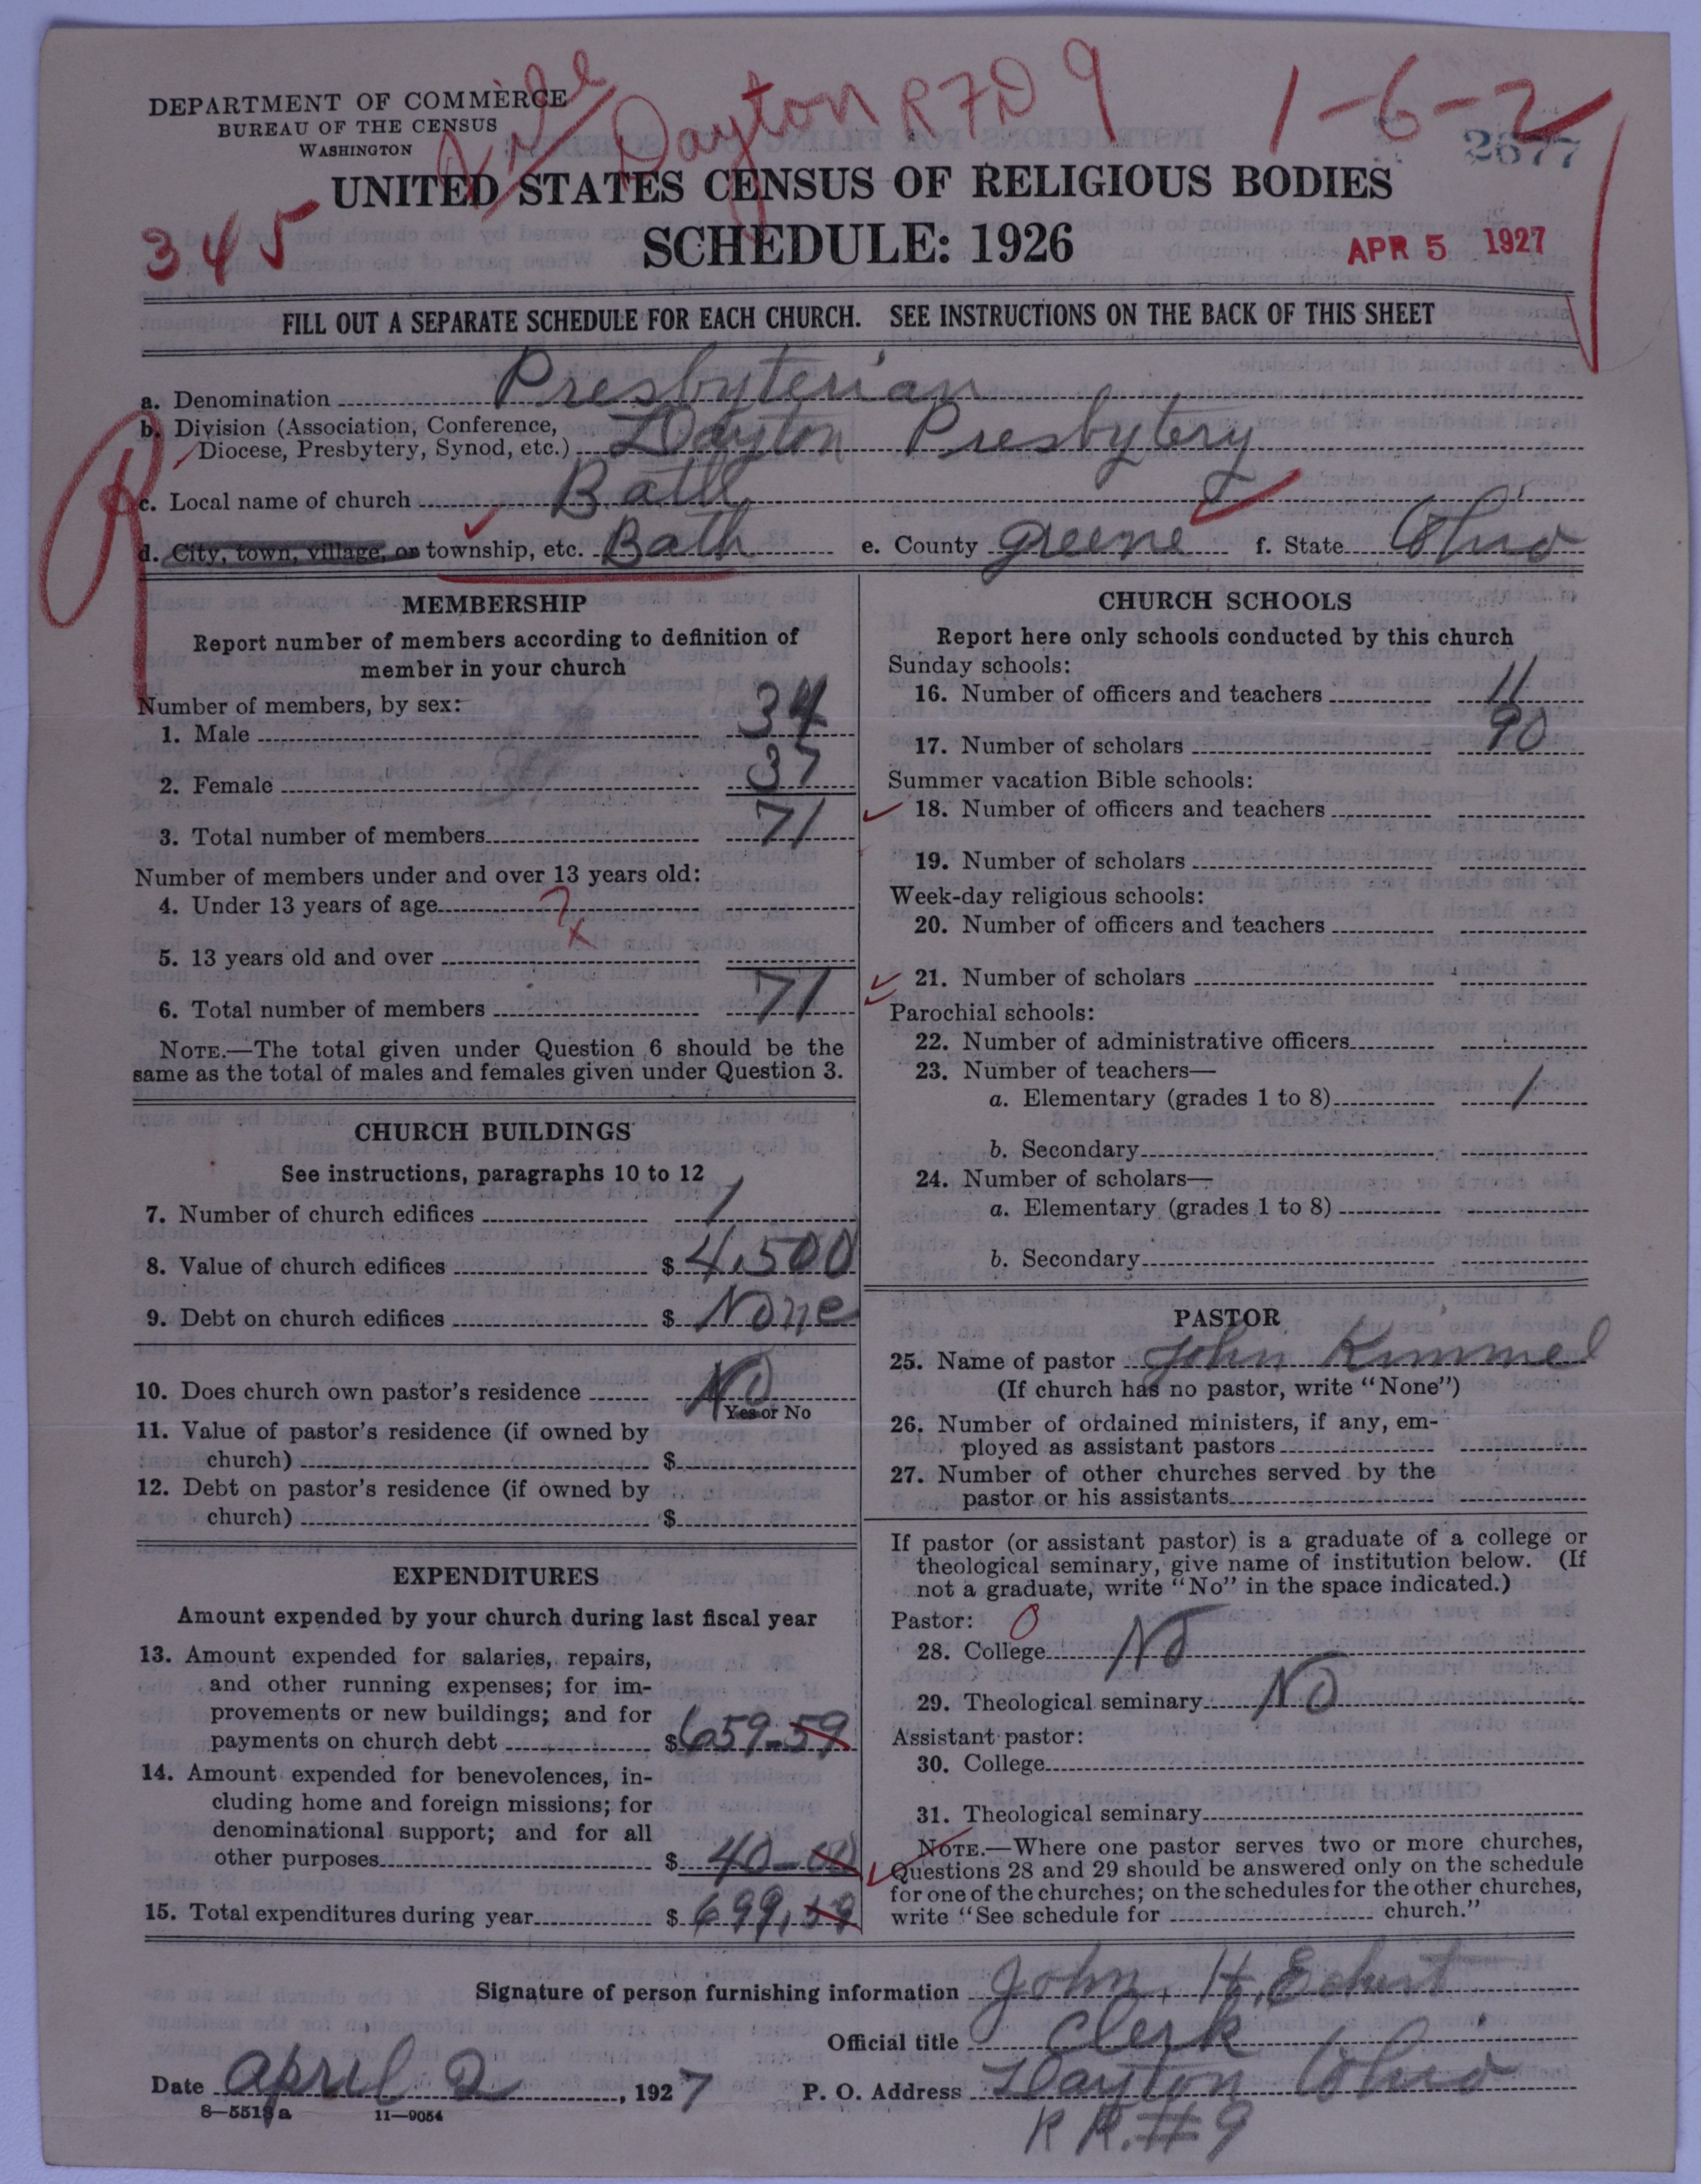 Dayton R7D 9
1-6-2
DEPARTMENT OF COMMERCE
BUREAU OF THE CENSUS
WASHINGTON
2677
UNITED STATES CENSUS OF RELIGIOUS BODIES
345
SCHEDULE: 1926
APR 5 1927
FILL OUT A SEPARATE SCHEDULE FOR EACH CHURCH. SEE INSTRUCTIONS ON THE BACK OF THIS SHEET
R
a. Denomination Presbyterian
b. Division (Association, Conference,
Diocese, Presbytery, Synod, etc.) Dayton Presbytery
c. Local name of church Bath
d. City, town, village, or township, etc. Bath e. County Greene f. State Ohio
MEMBERSHIP
Report number of members according to definition of
member in your church
Number of members, by sex:
1. Male 34
2. Female 37
3. Total number of members 71
Number of members under and over 13 years old:
4. Under 13 years of age ?
x
5. 13 years old and over
6. Total number of members 71
NOTE.—The total given under Question 6 should be the
same as the total of males and females given under Question 3.
CHURCH BUILDINGS
See instructions, paragraphs 10 to 12
7. Number of church edifices 1
8. Value of church edifices $ 4,500
9. Debt on church edifices $ None
10. Does church own pastor's residence No
Yes or No
11. Value of pastor's residence (if owned by
church) $
12. Debt on pastor's residence (if owned by
church) $
EXPENDITURES
Amount expended by your church during last fiscal year
13. Amount expended for salaries, repairs,
and other running expenses; for im-
provements or new buildings; and for
payments on church debt $ 659.59
14. Amount expended for benevolences, in-
cluding home and foreign missions; for
denominational support; and for all
other purposes $ 40-00
15. Total expenditures during year $ 699,59
CHURCH SCHOOLS
Report here only schools conducted by this church
Sunday schools:
16. Number of officers and teachers 11
17. Number of scholars 90
Summer vacation Bible schools:
18. Number of officers and teachers
19. Number of scholars
Week-day religious schools:
20. Number of officers and teachers
21. Number of scholars
Parochial schools:
22. Number of administrative officers
23. Number of teachers—
a. Elementary (grades 1 to 8) /
b. Secondary
24. Number of scholars—
a. Elementary (grades 1 to 8)
b. Secondary
PASTOR
25. Name of pastor John Kimmel
(If church has no pastor, write "None")
26. Number of ordained ministers, if any, em-
ployed as assistant pastors
27. Number of other churches served by the
pastor or his assistants
If pastor (or assistant pastor) is a graduate of a college or
theological seminary, give name of institution below. (If
not a graduate, write "No" in the space indicated.)
Pastor: 0
28. College No
29. Theological seminary No
Assistant pastor:
30. College
31. Theological seminary
NOTE.—Where one pastor serves two or more churches,
Questions 28 and 29 should be answered only on the schedule
for one of the churches; on the schedules for the other churches,
write "See schedule for church."
Signature of person furnishing information John. H. Echert
Official title Clerk
Date april 2, 1927 P. O. Address Dayton Ohio
R R. #9
8—5518 a 11—9054